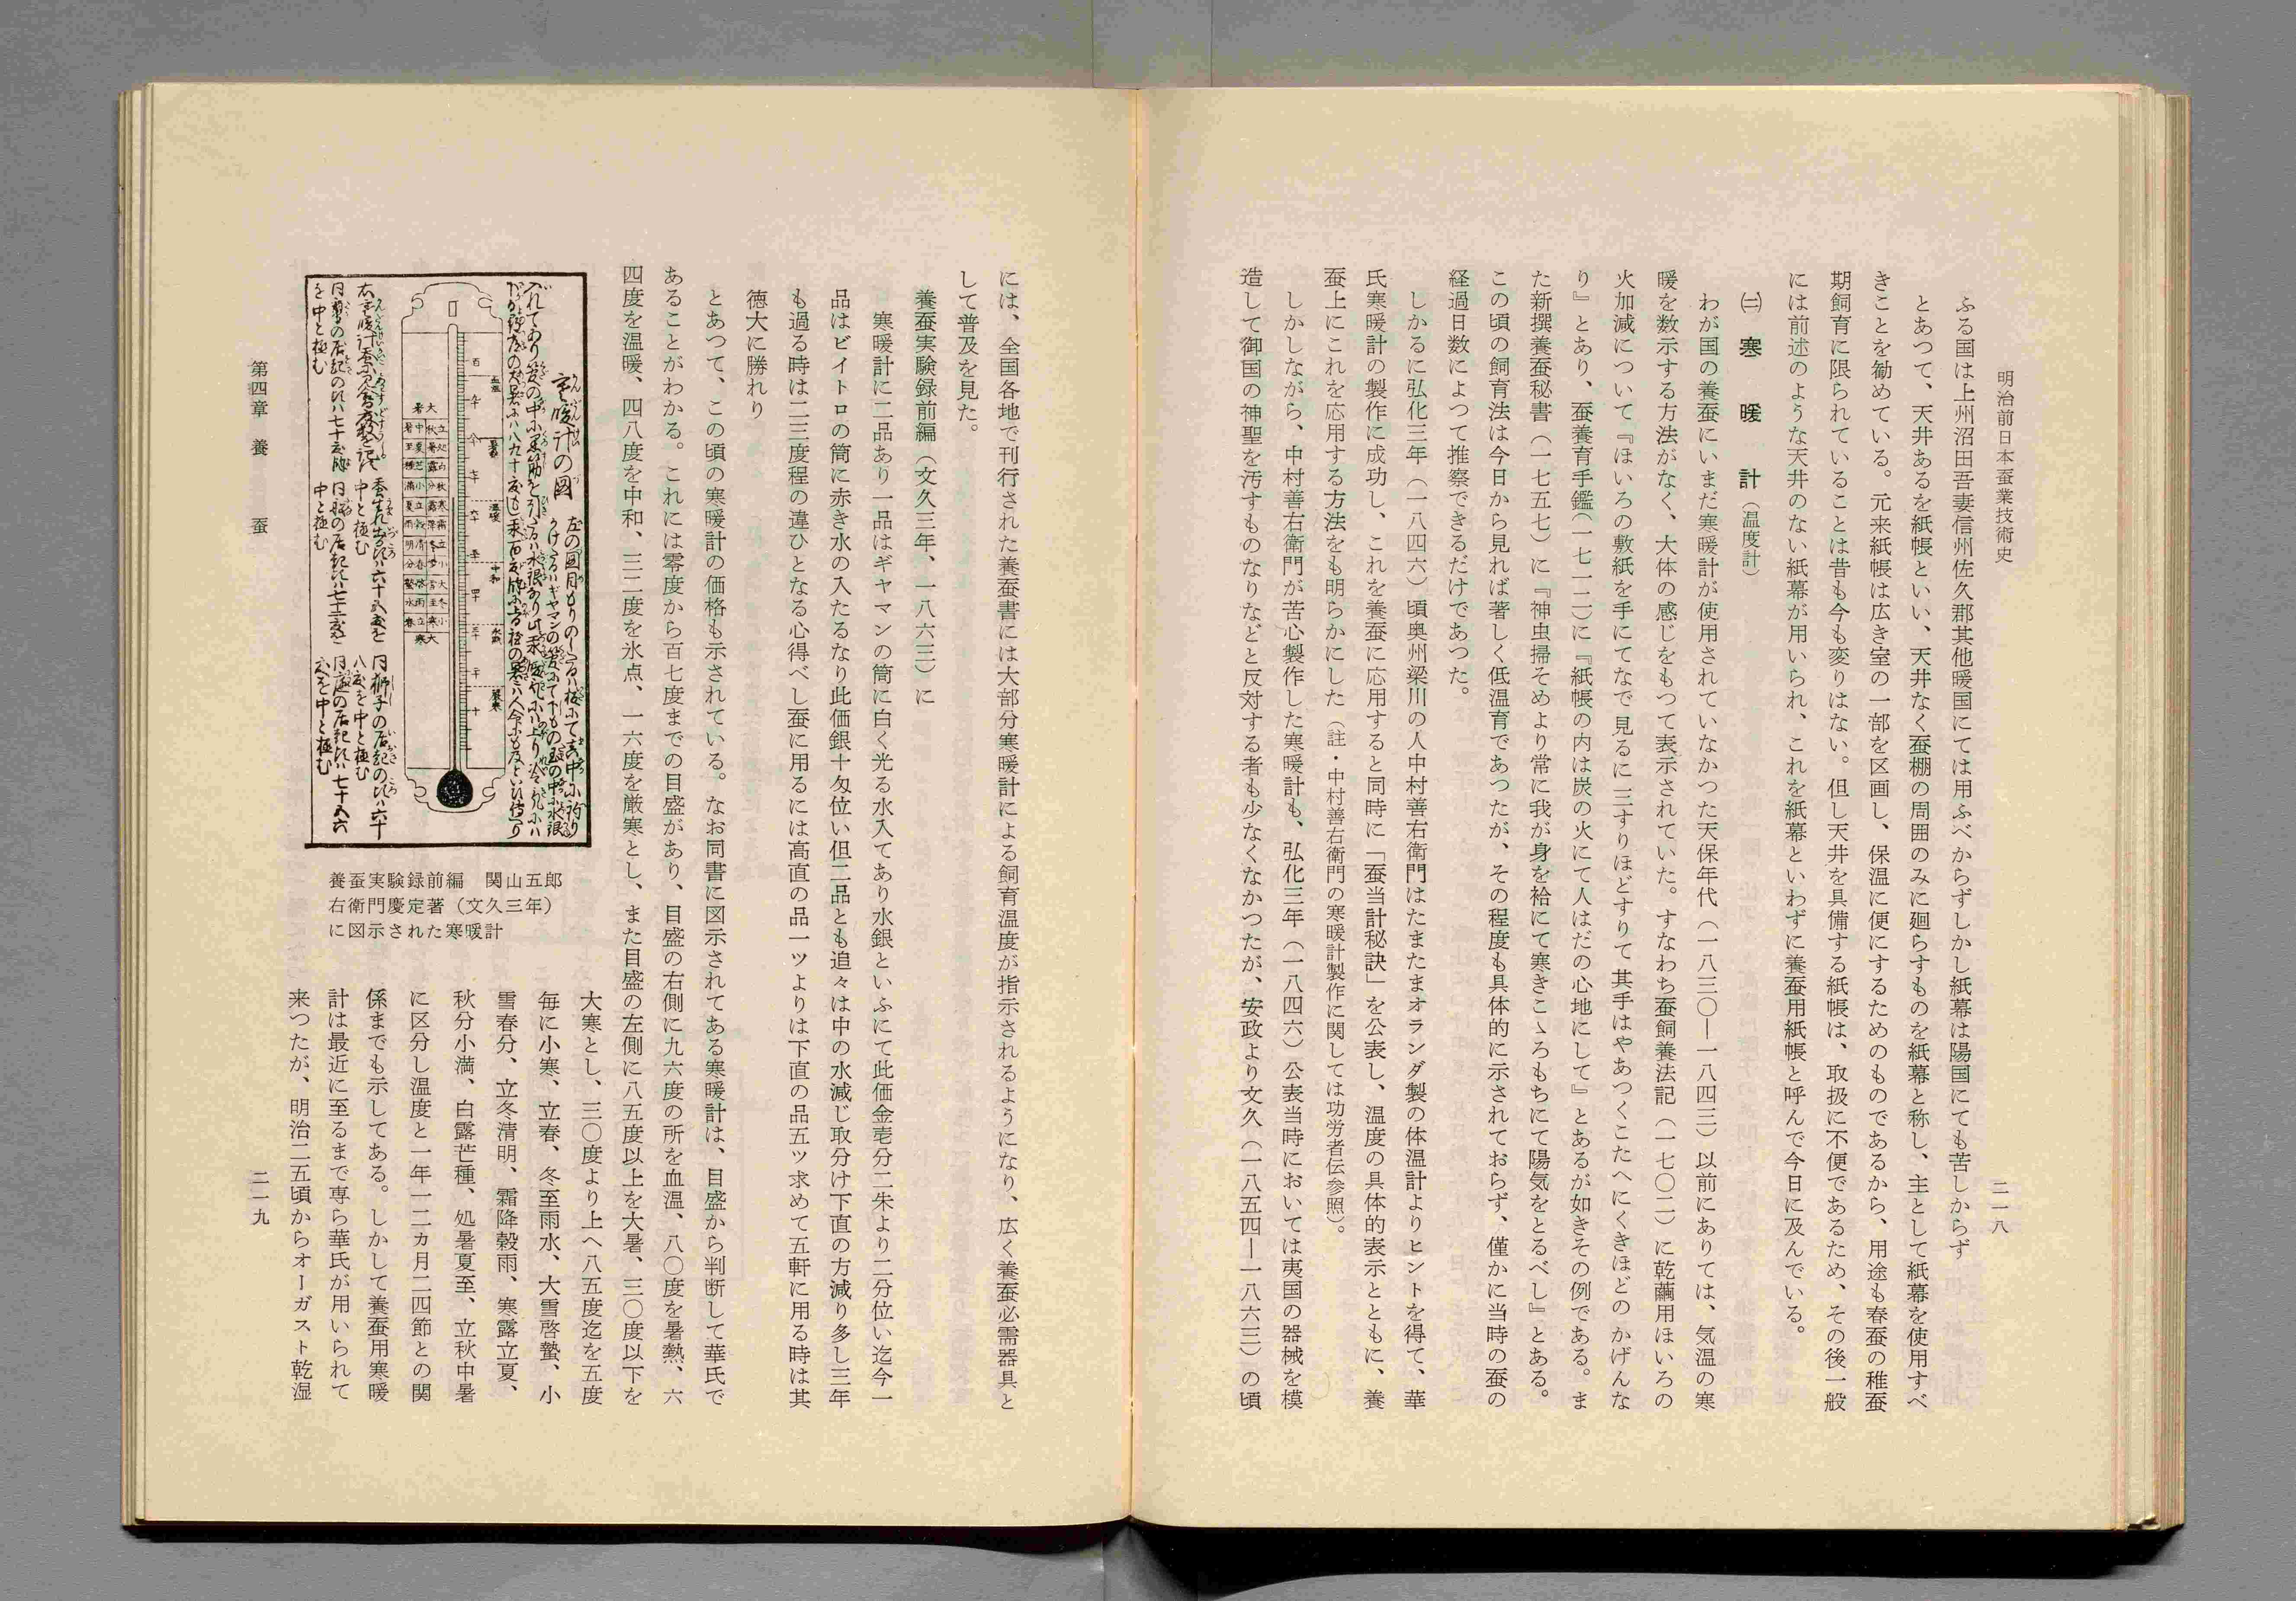 明治前日本蚕業技術史
二一八
ふる国は上州沼田吾妻信州佐久郡其他暖国にては用ふべからずしかし紙幕は陽国にても苦しからず
とあつて、天井あるを紙帳といい、天井なく蚕棚の周囲のみに廻らすものを紙幕と称し、主として紙幕を使用すべ
きことを勧めている。元来紙帳は広き室の一部を区画し、保温に便にするためのものであるから、用途も春蚕の稚蚕
期飼育に限られていることは昔も今も変りはない。但し天井を具備する紙帳は、取扱に不便であるため、その後一般
には前述のような天井のない紙幕が用いられ、これを紙幕といわずに養蚕用紙帳と呼んで今日に及んでいる。
㈡ 寒暖計（温度計）
わが国の養蚕にいまだ寒暖計が使用されていなかつた天保年代（一八三〇―一八四三）以前にありては、気温の寒
暖を数示する方法がなく、大体の感じをもつて表示されていた。すなわち蚕飼養法記（一七〇二）に乾繭用ほいろの
火加減について『ほいろの敷紙を手にてなで見るに三すりほどすりて其手はやあつくこたへにくきほどのかげんな
り』とあり、蚕養育手鑑（一七一二）に『紙帳の内は炭の火にて人はだの心地にして』とあるが如きその例である。ま
た新撰養蚕秘書（一七五七）に『神虫掃そめより常に我が身を袷にて寒きこゝろもちにて陽気をとるべし』とある。
この頃の飼育法は今日から見れば著しく低温育であつたが、その程度も具体的に示されておらず、僅かに当時の蚕の
経過日数によつて推察できるだけであつた。
しかるに弘化三年（一八四六）頃奥州梁川の人中村善右衛門はたまたまオランダ製の体温計よりヒントを得て、華
氏寒暖計の製作に成功し、これを養蚕に応用すると同時に「蚕当計秘訣」を公表し、温度の具体的表示とともに、養
蚕上にこれを応用する方法をも明らかにした（註・中村善右衛門の寒暖計製作に関しては功労者伝参照）。
しかしながら、中村善右衛門が苦心製作した寒暖計も、弘化三年（一八四六）公表当時においては夷国の器械を模
造して御国の神聖を汚すものなりなどと反対する者も少なくなかつたが、安政より文久（一八五四―一八六三）の頃
には、全国各地で刊行された養蚕書には大部分寒暖計による飼育温度が指示されるようになり、広く養蚕必需器具と
して普及を見た。
養蚕実験録前編（文久三年、一八六三）に
寒暖計に二品あり一品はギヤマンの筒に白く光る水入てあり水銀といふにて此価金壱分二朱より二分位い迄今一
品はビイトロの筒に赤き水の入たるなり此価銀十匁位い但二品とも追々は中の水減じ取分け下直の方減り多し三年
も過る時は二三度程の違ひとなる心得べし蚕に用るには高直の品一ツよりは下直の品五ツ求めて五軒に用る時は其
徳大に勝れり
とあつて、この頃の寒暖計の価格も示されている。なお同書に図示されてある寒暖計は、目盛から判断して華氏で
あることがわかる。これには零度から百七度までの目盛があり、目盛の右側に九六度の所を血温、八〇度を暑熱、六
四度を温暖、四八度を中和、三二度を氷点、一六度を厳寒とし、また目盛の左側に八五度以上を大暑、三〇度以下を
大寒とし、三〇度より上へ八五度迄を五度
毎に小寒、立春、冬至雨水、大雪啓蟄、小
雪春分、立冬清明、霜降穀雨、寒露立夏、
秋分小満、白露芒種、処暑夏至、立秋中暑
に区分し温度と一年一二カ月二四節との関
係までも示してある。しかして養蚕用寒暖
計は最近に至るまで専ら華氏が用いられて
来つたが、明治二五頃からオーガスト乾湿
寒暖計の図
養蚕実験録前編　関山五郎
右衛門慶定著（文久三年）
に図示された寒暖計
第四章　養蚕
二一九